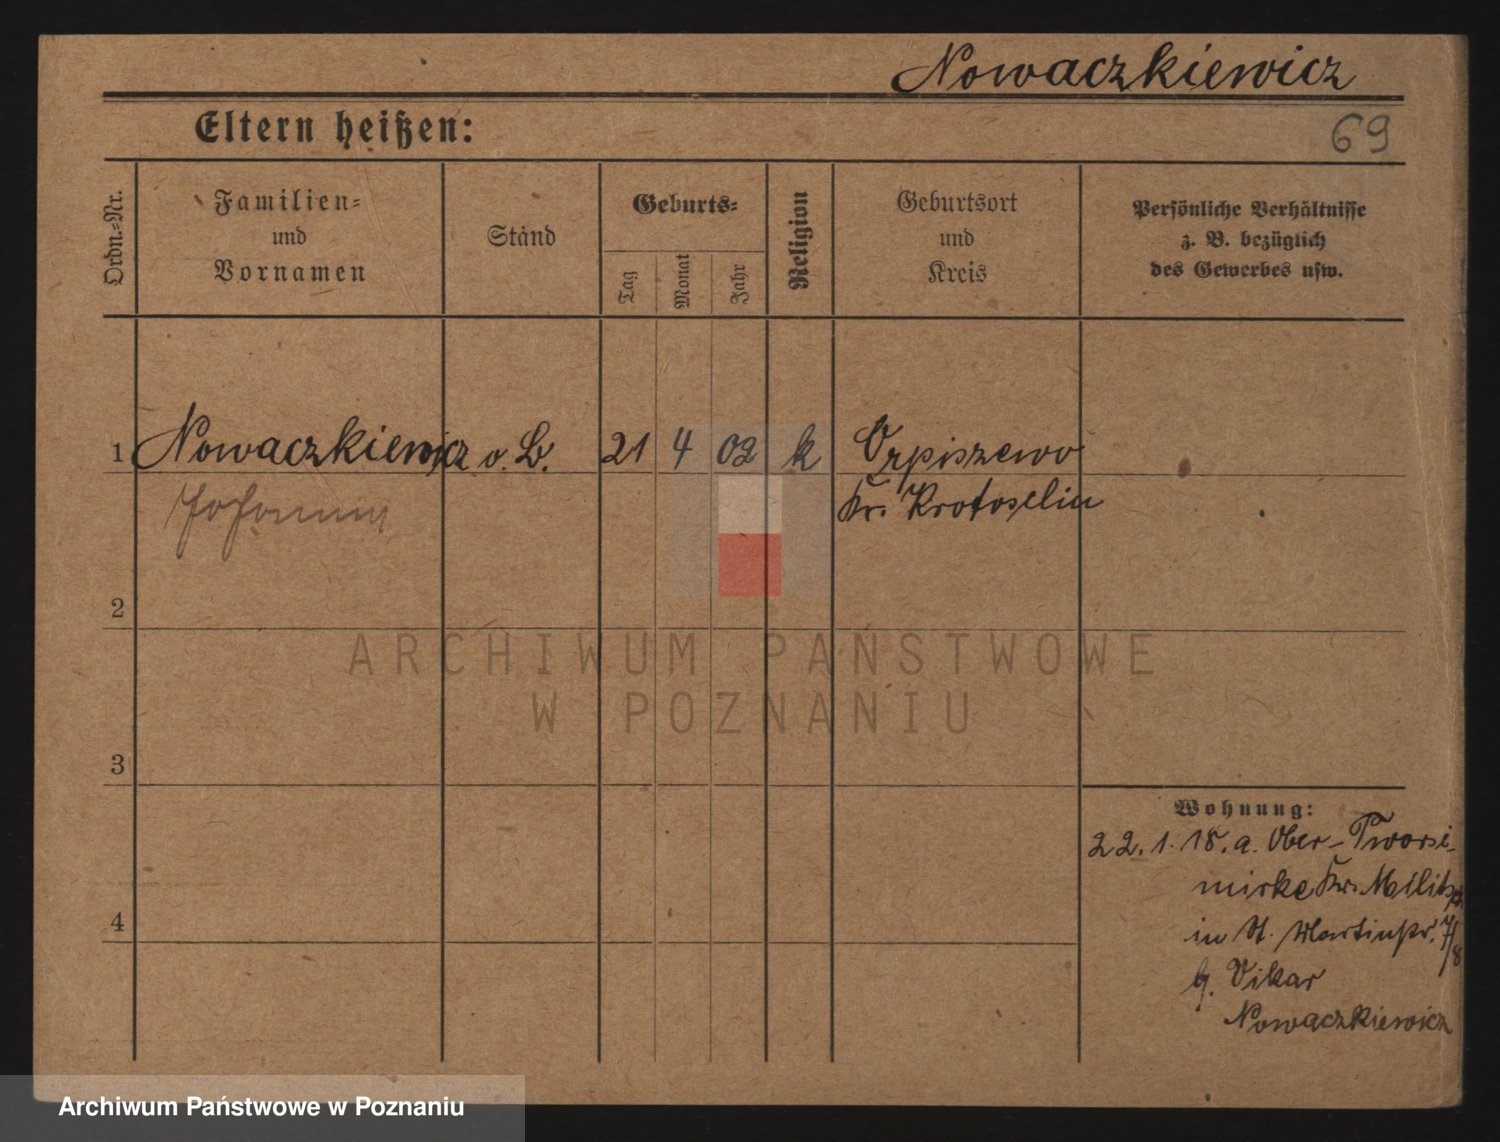 Nowaczkiewicz
Eltern heißen:
69
Ordn.-Nr.
Familien-
und
Vornamen
Stand
Geburts-
Tag
Monat
Jahr
Religion
Geburtsort
und
Kreis
Persönliche Verhältnisse
z. B. bezüglich
des Gewerbes usw.
1 Nowaczkiewicz o. B. 21 4 02 k Orpiszewo
Johann Kr. Krotoschin
2
3
4
Wohnung:
22. 1. 18. a. Ober-
mirke Krs. Militsch
in St. Martinstr. 7/8
b. Vikar
Nowaczkiewicz
ARCHIWUM PAŃSTWOWE
W POZNANIU
Archiwum Państwowe w Poznaniu